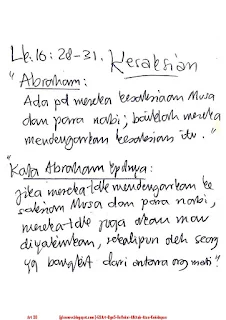 Lk. 16: 28-31. Kesaksian
"Abraham:
Ada pd mereka kesaksiaan Musa
dan para nabi; baiklah mereka
mendengarkan kesaksian itu."
"Kata Abraham kpdnya:
jika mereka tdk mendengarkan ke
saksian Musa dan para nabi,
mereka tdk juga akan mau
diyakinkan, sekalipun oleh seorg
yg bangkit dari antara org mati."